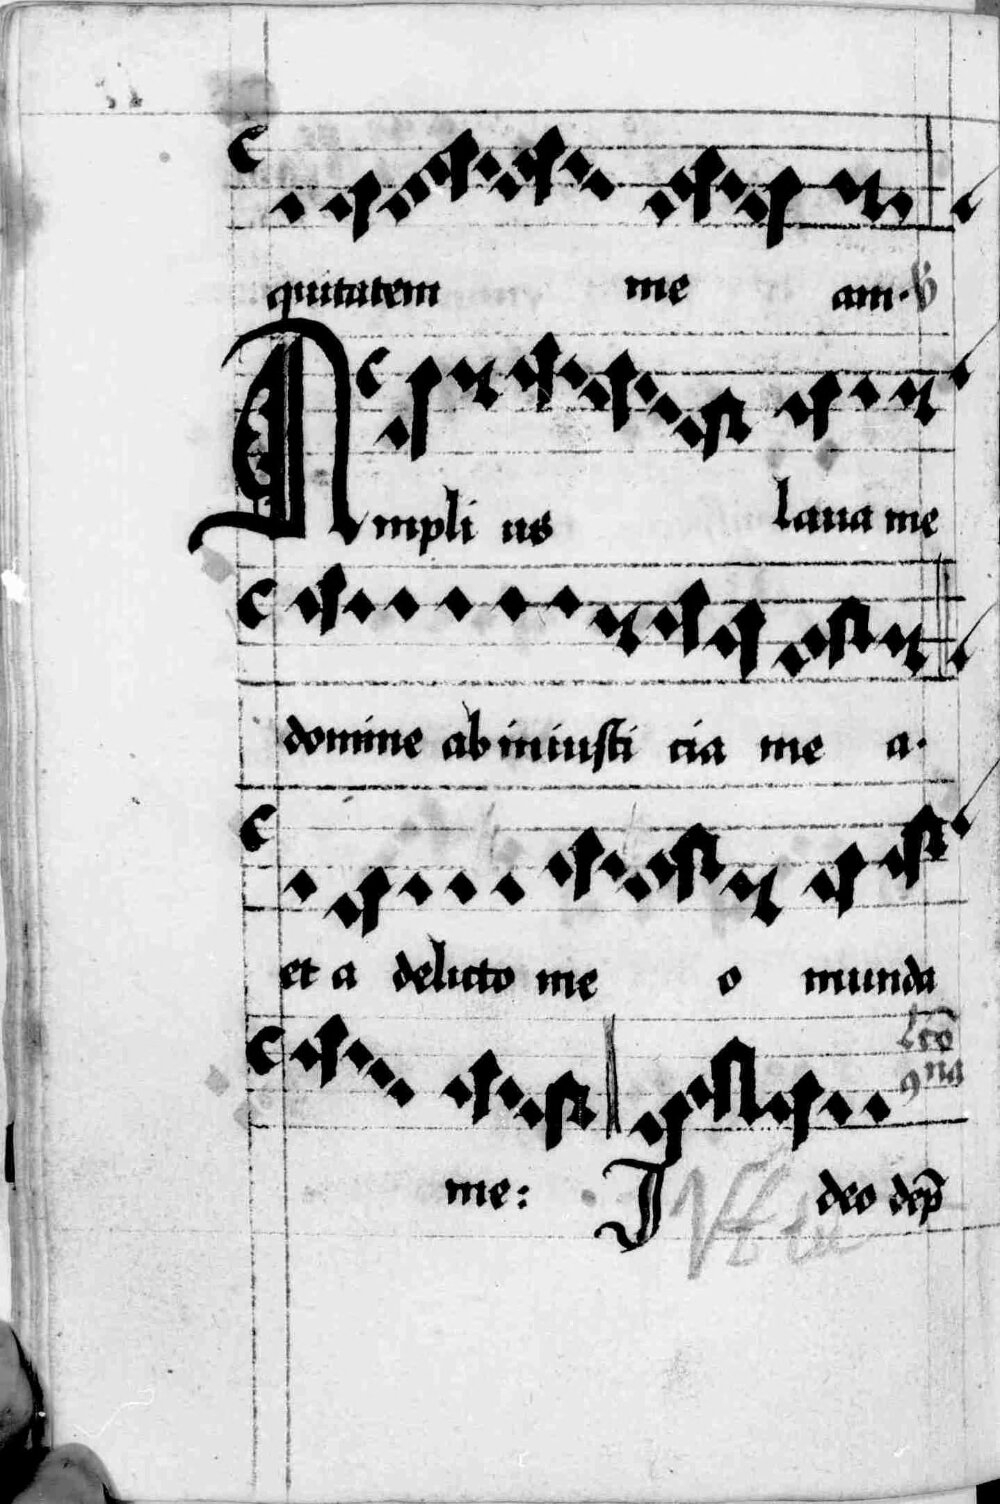 quitatem me am. V
Ampli us laua me
domine ab iniusti cia me a.
et a delicto me o munda
me: I deo dep̄